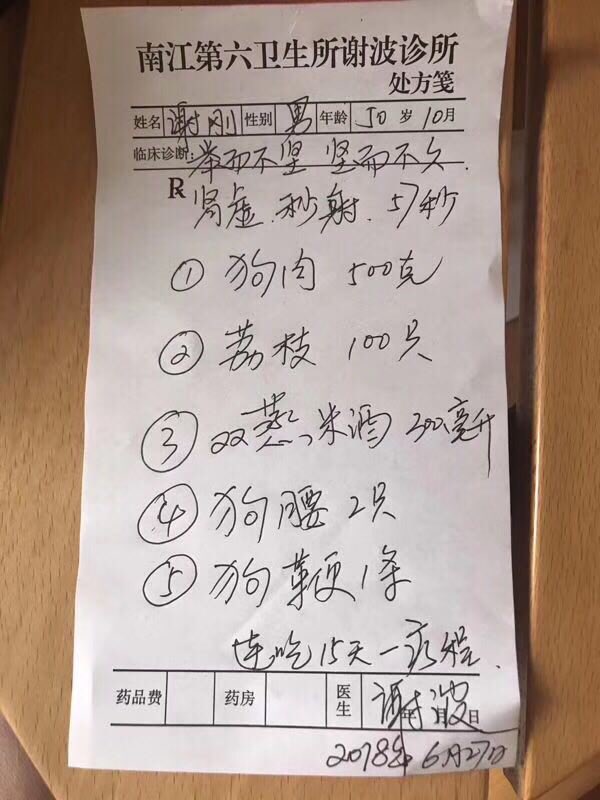 南江第六卫生所谢波诊所
处方笺
姓名 谢刚 性别 男 年龄 50 岁 10月
临床诊断: 举而不坚 坚而不久.
R 肾虚.秒射.57秒
① 狗肉 500克
② 荔枝 100只
③ 双蒸米酒 300毫升
④ 狗腰 2只
⑤ 狗鞭 1条
连吃15天一疗程.
药品费 药房 医生 谢波 年 月 日
2018年6月27日